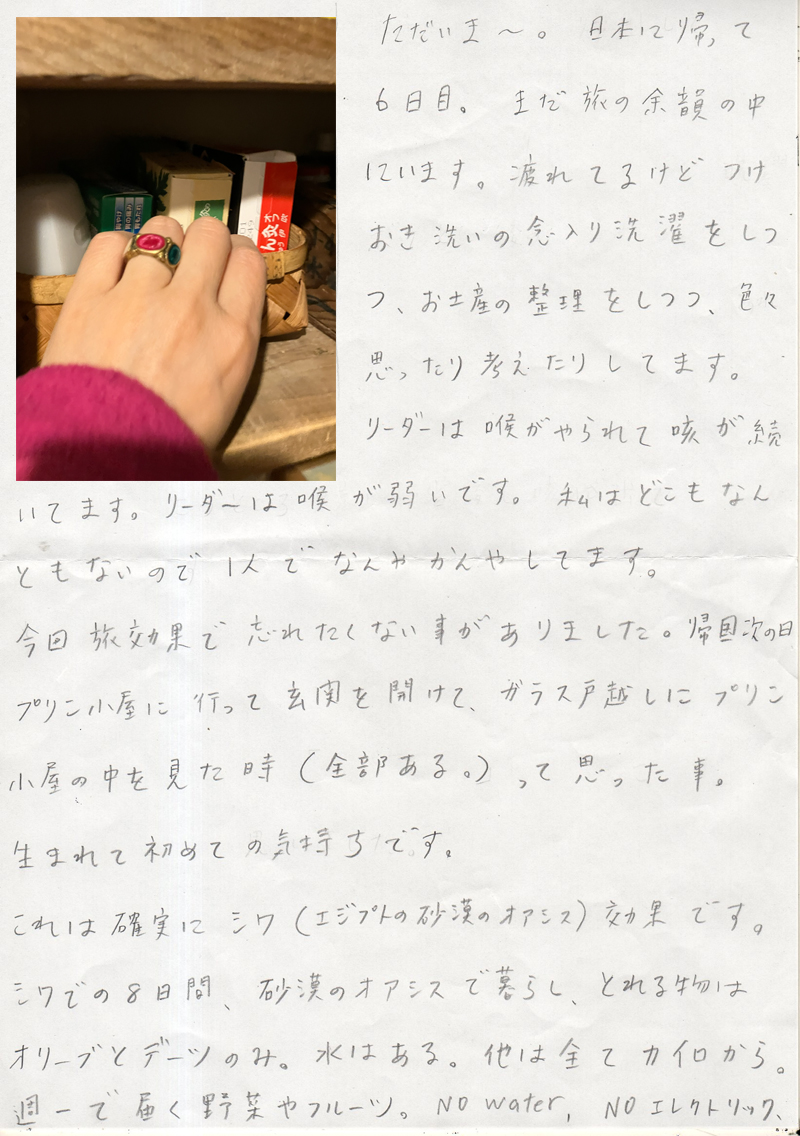 ただいま〜。日本に帰って
6日目。まだ旅の余韻の中
にいます。疲れてるけどつけ
おき洗いの念入り洗濯をしつ
つ、お土産の整理をしつつ、色々
思ったり考えたりしてます。
リーダーは喉がやられて咳が続
いてます。リーダーは喉が弱いです。私はどこもなん
ともないので1人でなんやかんやしてます。
今回旅効果で忘れたくない事がありました。帰国次の日
プリン小屋に行って玄関を開けて、ガラス戸越しにプリン
小屋の中を見た時(全部ある。)って思った事。
生まれて初めての気持ちです。
これは確実にシワ(エジプトの砂漠のオアシス)効果です。
シワでの8日間、砂漠のオアシスで暮らし、とれる物は
オリーブとデーツのみ。水はある。他は全てカイロから。
週一で届く野菜やフルーツ。NO water, NO エレクトリック、
胸やけ
胸の痛み
胸もたれ
ん灸